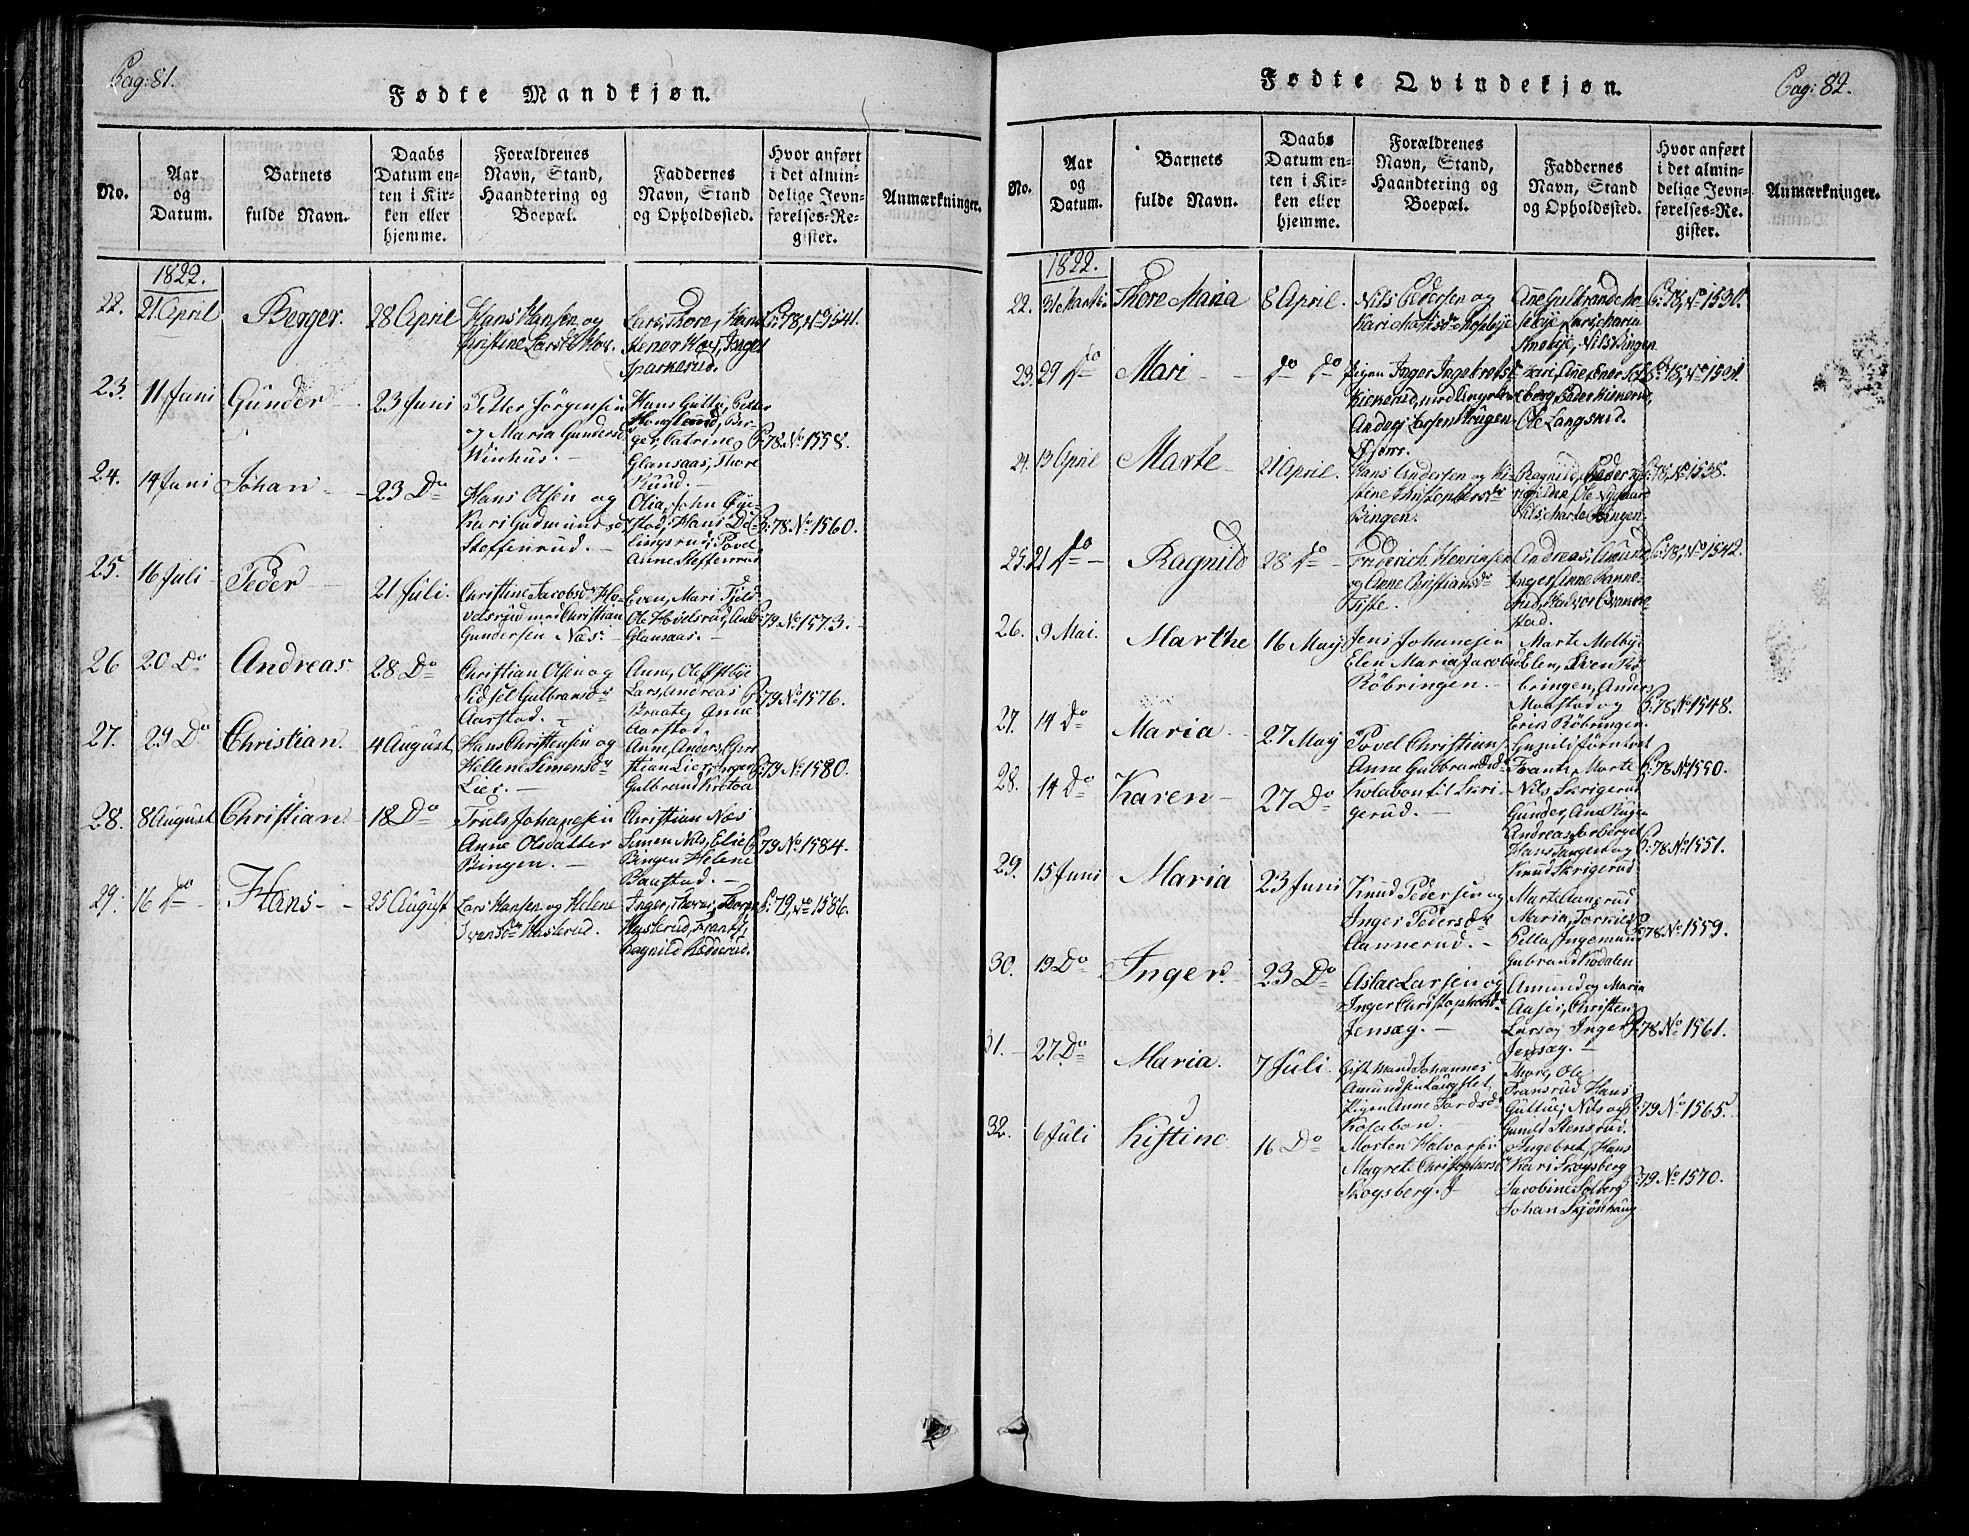 Pag: 81.
Fødte Mandkjøn.
No.
Aar
og
Datum.
Barnets
fulde Navn.
Daabs
Datum en-
ten i Kir-
ken eller
hjemme.
Forældrenes
Navn, Stand,
Haandtering og
Boepæl.
Faddernes
Navn, Stand
og Opholdssted.
Hvor anført
i det almin-
delige Jevn-
førelses-Re-
gister.
Anmærkninger.
1822.
22. 21 April Berger. 28 April
Hans Hansen og
Kirstine Larsd.
Lars, Thore, Hans
P: 78, No 1541.
23. 11 Juni Gunder 23 Juni
Petter Jørgensen
og Maria Gundersd
Winhus.
Hans Guttu, Petter
Haugland, Bir-
ge, Catrine
Glansaas, Thore
Ruud.
P: 78. No 1558.
24. 14 Juni Johan 23 Do
Hans Olsen og
Kari Gudmundsd
Steffenrud.
Olia, John
stad, Hans De-
lingsrud, Povel
Anne Steffenrud
P: 78 No 1560.
25. 16 Juli Peder 21 Juli.
Christine Jacobsdr Ho-
velsrud med Christian
Gundersen Næs.
Even, Mari Fjeld
Ole Hovelsrud, And
Glansaas.
P: 79 No 1573.
26 20 Do Andreas 28 Do
Christian Olsen og
Sidsel Gulbransdr
Aarstad.
Anne, Ole Østbye
Lars, Andreas
Braate, Anne
Aarstad.
P: 79 No 1576.
27. 29 Do Christian 4 August
Hans Christensen og
Hellene Simensdr
Lier.
Anne, Anders, Chri
stian Lier, Inger
Gulbrand Krotoa
P: 79 No 1580.
28. 8 August Christian 18 Do
Truls Johanesen
Anne Olsdatter
Bingen.
Christian Næs
Simen Nils, Elie
Bingen Helene
Baustad.
P: 79 No 1584.
29. 16 do Hans 25 August
Lars Hansen og Helene
Ivensdr Haslerud.
Inger, Thore,
Haslerud, Frants,
Ragnild
P: 79, No 1586.
Pag: 82.
Fødte Qvindekjøn.
No.
Aar
og
Datum.
Barnets
fulde Navn.
Daabs
Datum en-
ten i Kir-
ken eller
hjemme.
Forældrenes
Navn, Stand,
Haandtering og
Boepæl.
Faddernes
Navn, Stand
og Opholdssted.
Hvor anført
i det almin-
delige Jevn-
førelses-Re-
gister.
Anmærkninger.
1822.
22. 31te Marts. Thore Maria 8 April.
Nils Pedersen og
Kari
Ane Gulbrand
Lars, Maria
Nils Bingen
P: 78, No 1530.
23. 29 do Mari do do
Pigen Inger Ingebretsdr
med Ungkarl
Andreas Larsen Haugen
Ole Langerud.
P: 78, No 1531.
24. 13 April Marte 21 April.
Hans Andersen og Ki-
stine Christophersdr
Bingen.
Ragnild, Peder
Ole Nygaard
Nils, Marte Bingen
P: 78, No 1538.
25. 21 do Ragnild 28 do
Friderich Henriksen
og Anne Christiansdr
Andreas, Amund
Inger, Anne
stad.
P: 78, No 1542.
26. 9 Mai. Marthe 16 May
Jens Johanesen
Elen Maria Jacobsd
Röbringen.
Marte Melbye
Elen, Iver Rö-
bringen, Anders
Monstad og
Erik Röbringen.
P: 78 No 1548.
27. 14 Do Maria 27 May
Povel Christian
Anne Gulbrandsdr
Frants, Marte
P: 78 No 1550.
28. 14 Do Karen 27 Do
Kolabon til Skri
gerud.
Nils Skrigerud
Gunder, Ane
Andreas Sorberget
Hans Tangen og
Knud Skrigerud
P: 78 No 1551.
29. 15 Juni Maria 23 Juni
Knud Pedersen og
Inger Pedersdr
Dannerud.
Marte
Maria, Torkild
Pella, Ingemund
Gubrand Rodalen
P: 78 No 1559.
30. 19 Do Inger 23 Do
Aslac Larsen og
Inger Christophersdr
Jensæg.
Amund og Maria
Aasen, Christen,
Lars og Inger
Jensæg.
P: 78 No 1561.
31. 27 Do Maria. 7 Juli
Gift Mand Johannes
Amundsen Langslet,
Pigen Anne Tordsdr
Kolabon.
Thore, Ole
Fransrud Hans
Guttue, Nils og
Gunild Stensrud.
P: 79 No 1565.
32. 6 Juli Kistine 16 Do
Morten Halvorsen
Magrete Christophersdr
Skogsberg.
Ingebret, Hans
Kari Skogsberg
Jacobine Solberg
Johan Skjönhaug
P: 79 No 1570.